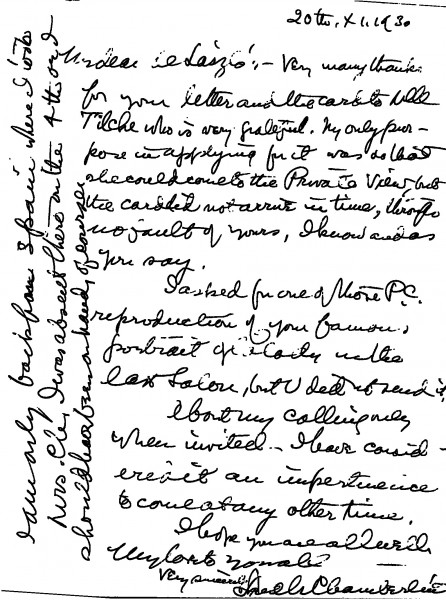 20th. XI. 1930
My dear de László: - Very many thanks
for your letter and the card to Mlle
Tilche who is very grateful. My only pur-
pose in applying for it was so that
she could come to the Private View, but
the card did not arrive in time, through
no fault of yours, I know and as
you say.
I asked for one of those P.C.
reproduction of your famous
portrait of a lady in the
last Salon, but U did not send it,
About my calling only
when invited - I have consid-
ered it an impertinence
to come at any other time.
I hope you are all well
My love to you all
Very sincerely
Chamberlin
I am only back from Spain where I took
Mrs. C. I was absent there on the 4th and
should have been on hand, of course